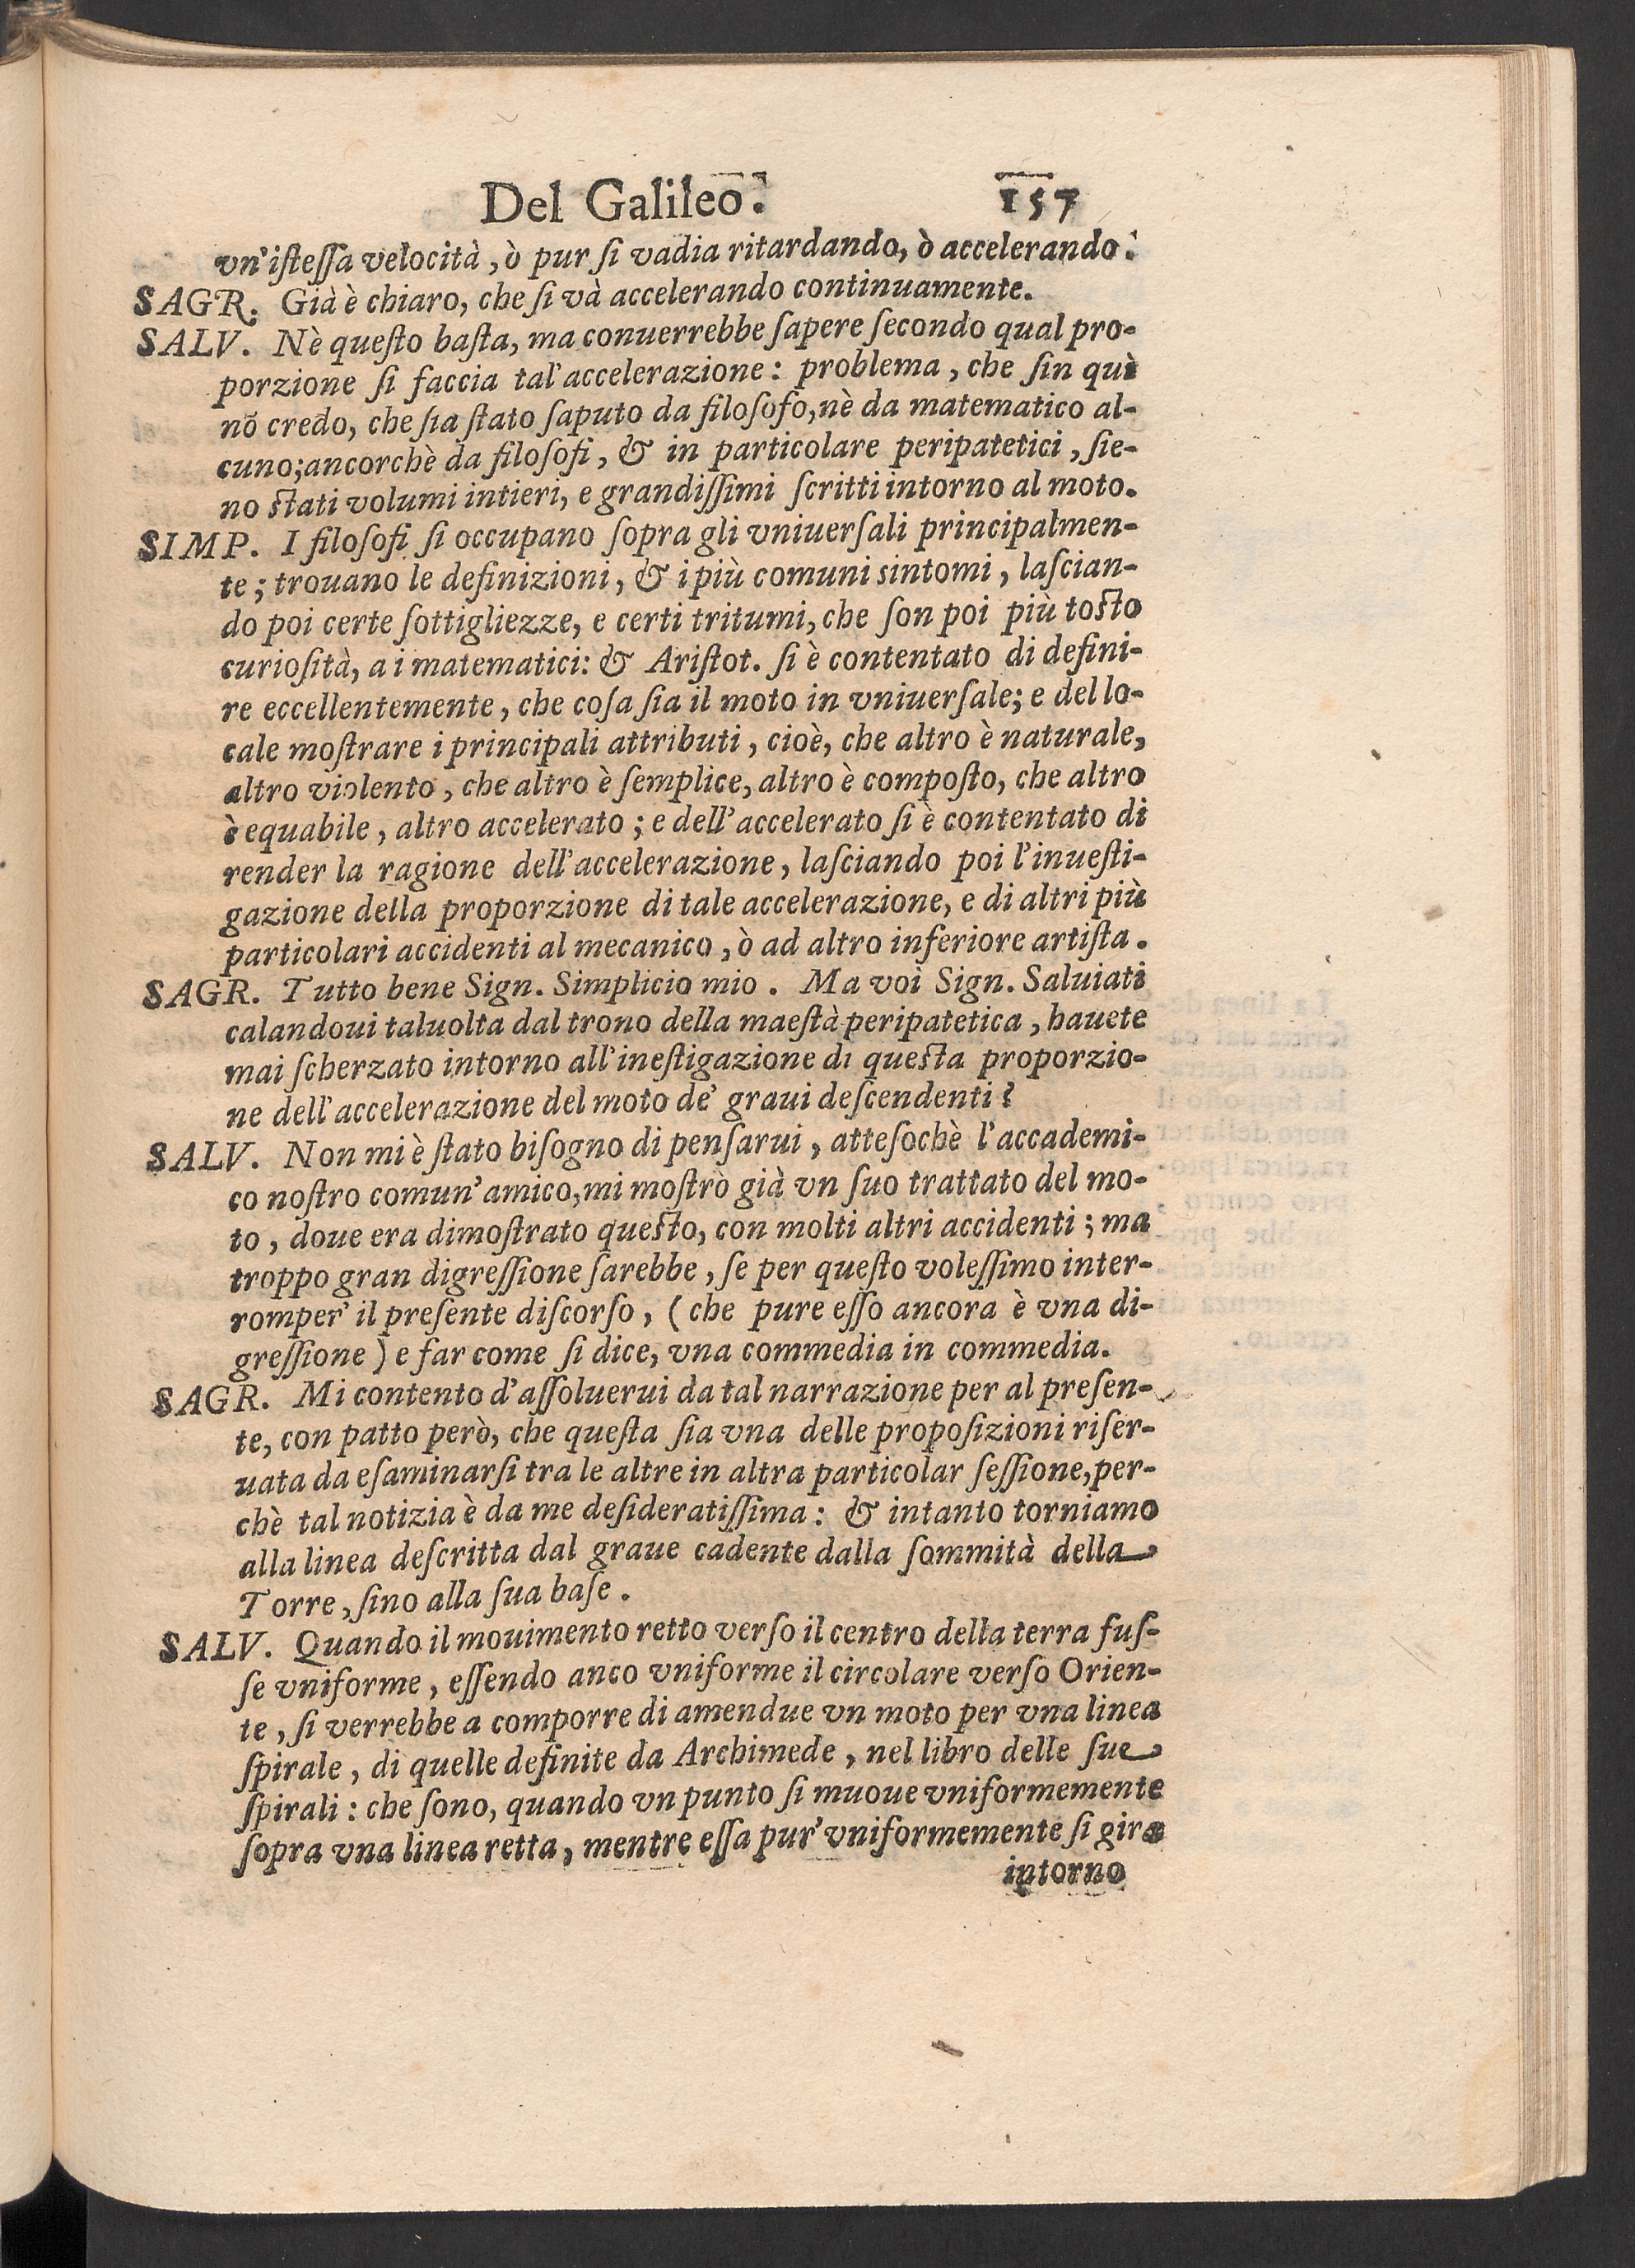 Del Galileo. 157
vn'isteſſa velocità, ò pur ſi vadia ritardando, ò accelerando.
SAGR. Già è chiaro, che ſi và accelerando continuamente.
SALV. Nè queſto baſta, ma conuerrebbe ſapere ſecondo qual pro-
porzione ſi faccia tal'accelerazione: problema, che ſin quì
nõ credo, che ſia ſtato ſaputo da filoſofo, nè da matematico al-
cuno; ancorchè da filoſofi, & in particolare peripatetici, ſie-
no ſtati volumi intieri, e grandiſſimi ſcritti intorno al moto.
SIMP. I filoſofi ſi occupano ſopra gli vniuerſali principalmen-
te; trouano le definizioni, & i più comuni sintomi, laſcian-
do poi certe ſottigliezze, e certi tritumi, che ſon poi più toſto
curioſità, a i matematici: & Ariſtot. ſi è contentato di defini-
re eccellentemente, che coſa ſia il moto in vniuerſale; e del lo-
cale moſtrare i principali attributi, cioè, che altro è naturale,
altro violento, che altro è ſemplice, altro è compoſto, che altro
è equabile, altro accelerato; e dell'accelerato ſi è contentato di
render la ragione dell'accelerazione, laſciando poi l'inueſti-
gazione della proporzione di tale accelerazione, e di altri più
particolari accidenti al mecanico, ò ad altro inferiore artiſta.
SAGR. Tutto bene Sign. Simplicio mio. Ma voi Sign. Saluiati
calandoui taluolta dal trono della maeſtà peripatetica, hauete
mai ſcherzato intorno all'ineſtigazione di queſta proporzio-
ne dell'accelerazione del moto de' graui deſcendenti?
SALV. Non mi è ſtato biſogno di penſarui, atteſochè l'accademi-
co noſtro comun'amico, mi moſtrò già vn ſuo trattato del mo-
to, doue era dimoſtrato queſto, con molti altri accidenti; ma
troppo gran digreſſione ſarebbe, ſe per queſto voleſſimo inter-
romper' il preſente diſcorſo, (che pure eſſo ancora è vna di-
greſſione) e far come ſi dice, vna commedia in commedia.
SAGR. Mi contento d'aſſoluerui da tal narrazione per al preſen-
te, con patto però, che queſta ſia vna delle propoſizioni riſer-
uata da eſaminarſi tra le altre in altra particolar ſeſſione, per-
chè tal notizia è da me deſideratiſſima: & intanto torniamo
alla linea deſcritta dal graue cadente dalla ſommità della
Torre, ſino alla ſua baſe.
SALV. Quando il mouimento retto verſo il centro della terra fuſ-
ſe vniforme, eſſendo anco vniforme il circolare verſo Orien-
te, ſi verrebbe a comporre di amendue vn moto per vna linea
ſpirale, di quelle definite da Archimede, nel libro delle ſue
ſpirali: che ſono, quando vn punto ſi muoue vniformemente
ſopra vna linea retta, mentre eſſa pur' vniformemente ſi gira
intorno